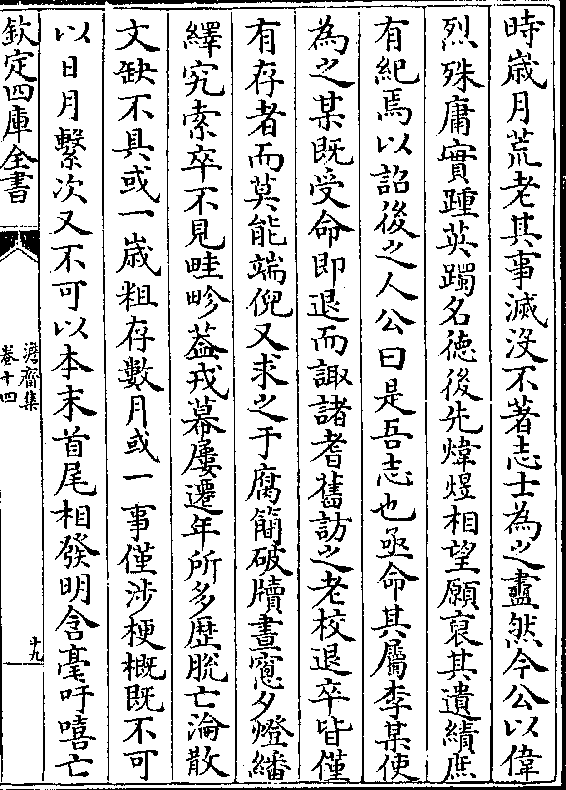 時歳月荒老其事滅没不著志士為之衋然今公以偉
烈殊庸實踵英躅名徳後先煒煜相望願裒其遺績庶
有紀焉以詔後之人公曰是吾志也亟命其屬李某使
為之某既受命即退而諏諸耆舊訪之老校退卒皆僅
有存者而莫能端倪又求之于腐簡破牘晝窻夕燈繙
繹究索卒不見畦畛葢戎幕屢遷年所多歴脱亡淪散
文缺不具或一歳粗存數月或一事僅涉梗概既不可
以日月繫次又不可以本末首尾相發明含毫吁嘻亡
欽定四庫全書
澹齋集
卷十四
十九